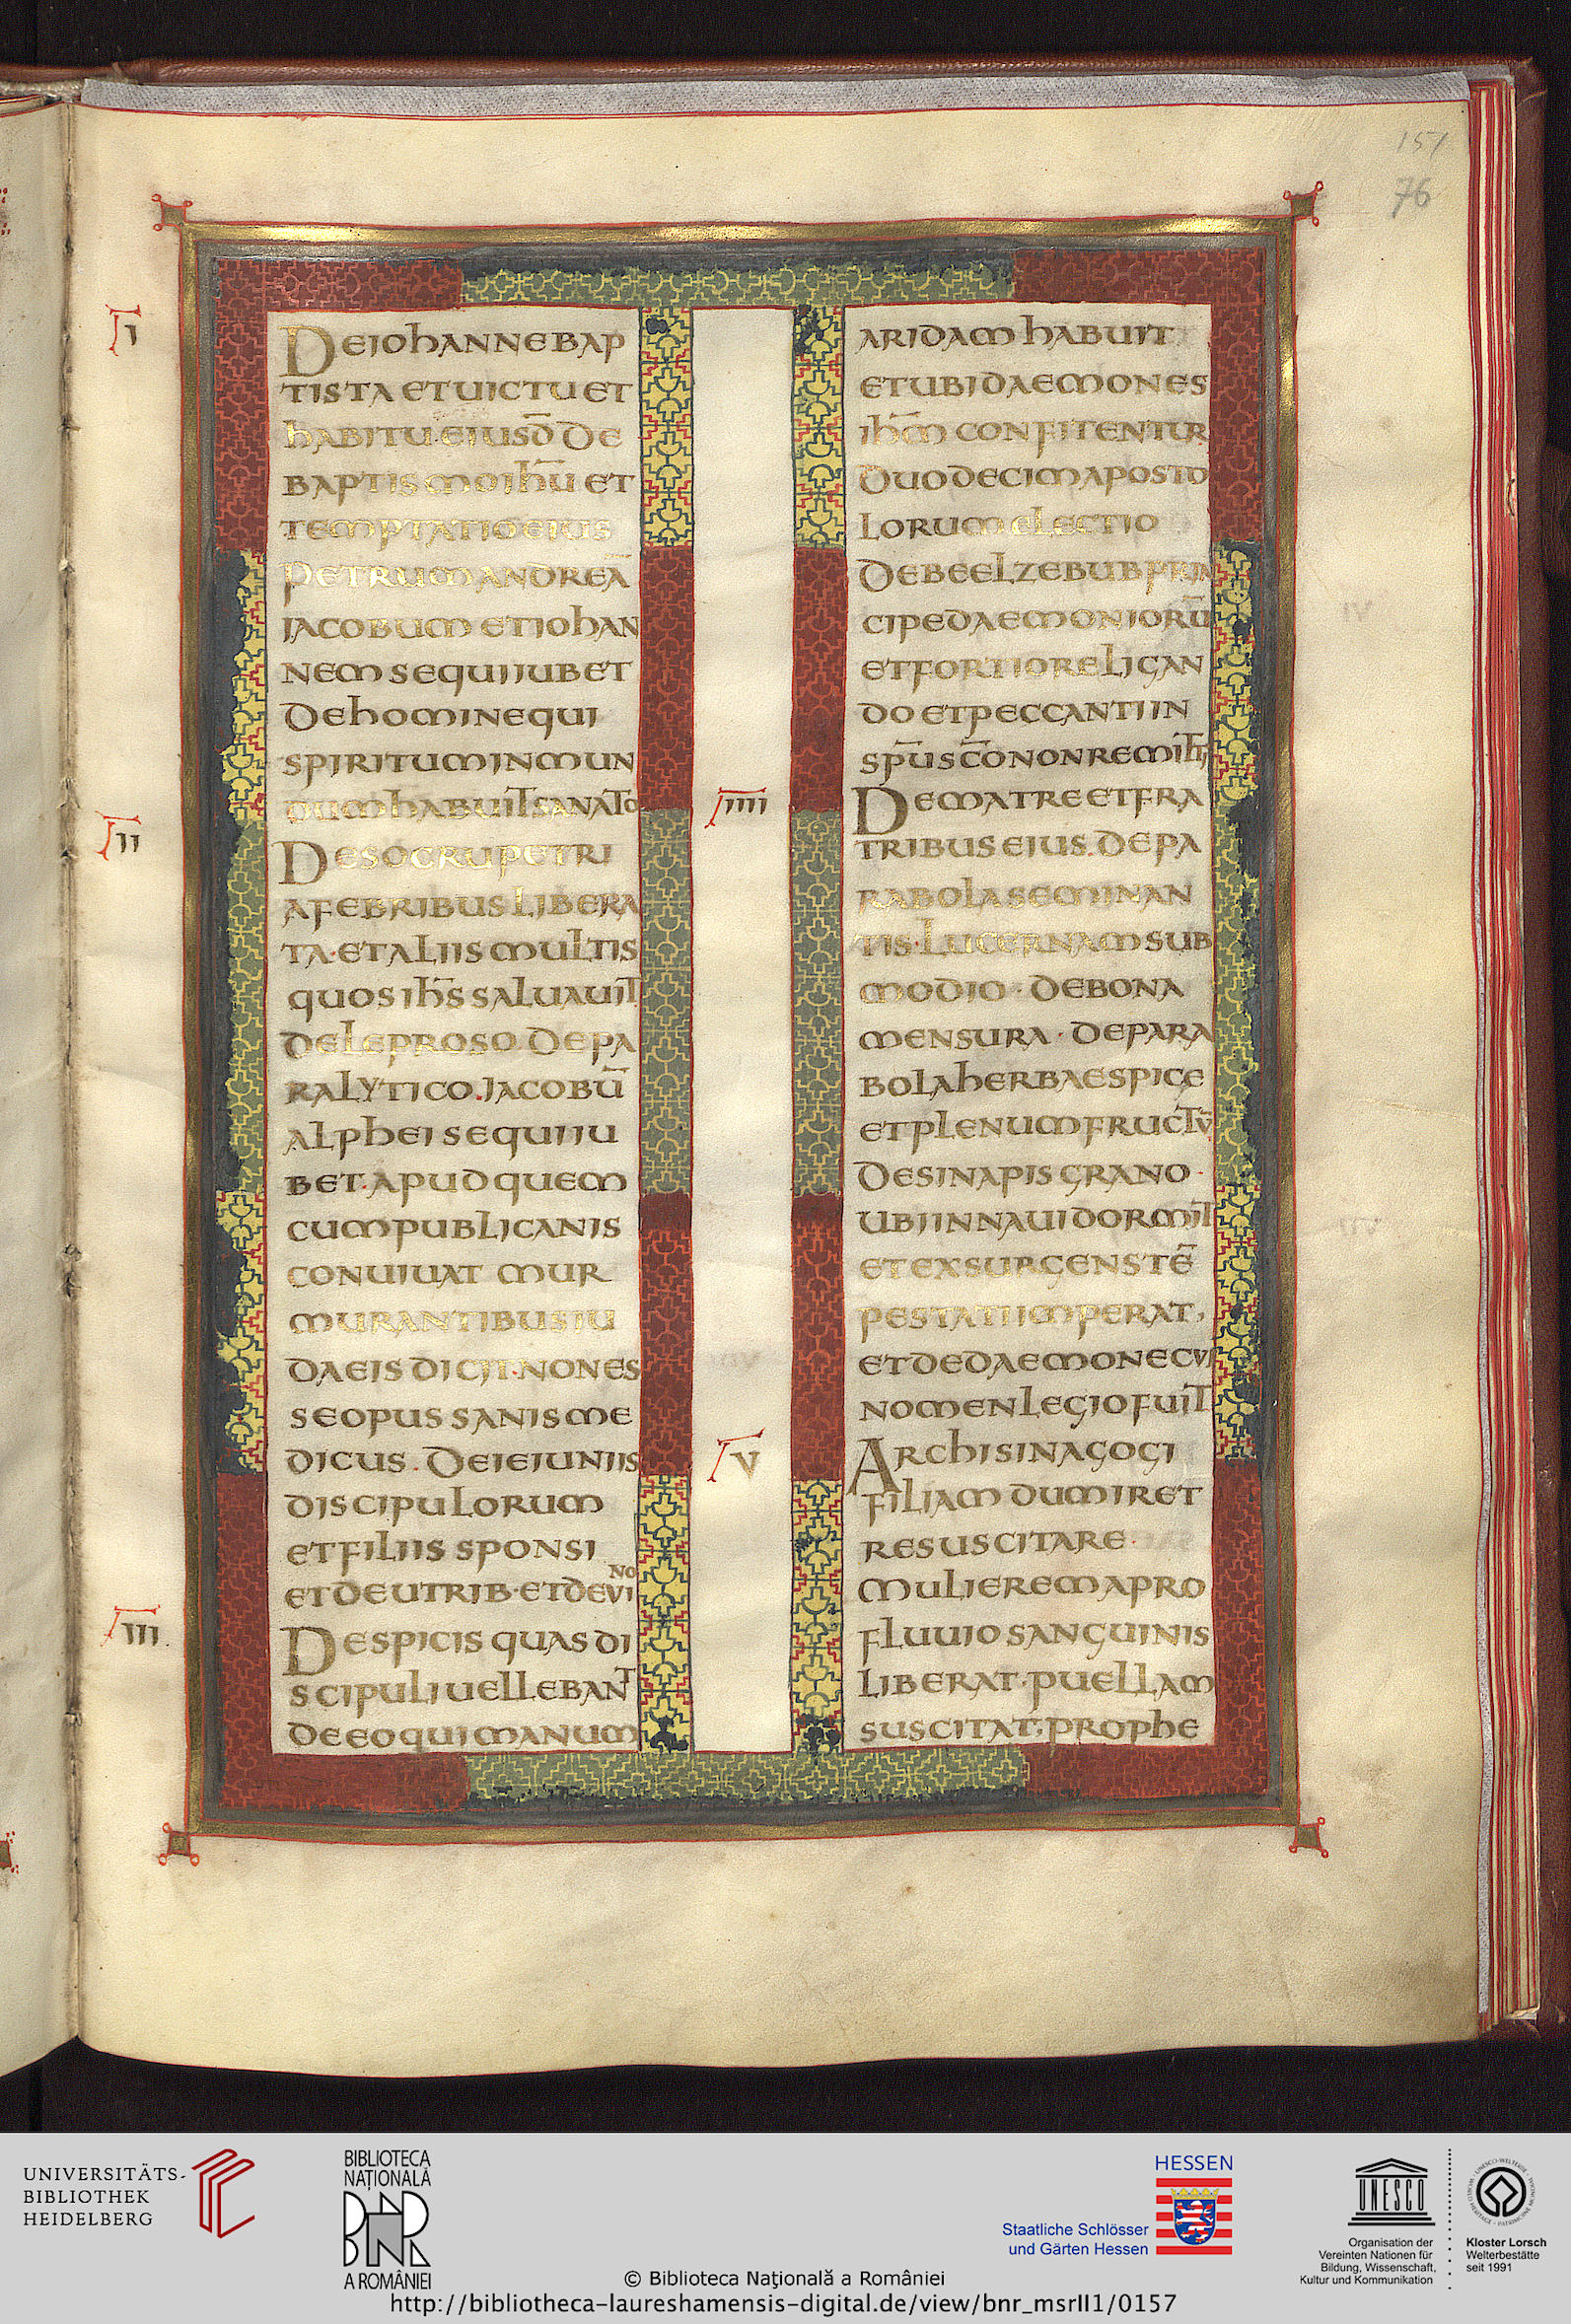 151
76
I
DEIOHANNEBAP
TISTA ETUICTUET
HABITU·EIUSD̄ DE
BAPTISMOIHŪ ET
TEMPTATIOEIUS
PETRUMANDREĀ
IACOBUM ETIOHAN
NEMSEQUIIUBET
DEHOMINEQUI
SPIRITUMINMUN
DUMHABUITSANATO
II
DESOCRUPETRI
AFEBRIBUSLIBERA
TA·ETALIISMULTIS
QUOSIHS̄SALUAUIT
DELEPROSO·DEPA
RALYTICO.IACOBŪ
ALPHEISEQUIIU
BET·APUDQUEM
CUMPUBLICANIS
CONUIUAT MUR
MURANTIBUSIU
DAEISDICIT·NONES
SEOPUSSANISME
DICUS. DEIEIUNIIS
DISCIPULORUM
ETFILIISSPONSI
ETDEUTRIB·ETDEVINO
III
DESPICISQUASDI
SCIPULIUELLEBANT
DEEOQUIMANUM
ARIDAMHABUIT
ETUBIDAEMONES
IHM̄CONFITENTUR
DUODECIMAPOSTO
LORUMELECTIO
DEBEELZEBUBPRIN
CIPEDAEMONIORŪ
ETFORTIORELIGAN
DOETPECCANTIIN
SPŪSCŌNONREMITTI
IIII
DEMATREETFRA
TRIBUSEIUS.DEPA
RABOLASEMINAN
TIS·LUCERNAMSUB
MODIO·DEBONA
MENSURA·DEPARA
BOLAHERBAESPICE
ETPLENUMFRUCTŪ
DESINAPISGRANO·
UBIINNAUIDORMIT
ETEXSURGENSTĒ
PESTATIIMPERAT,
ETDEDAEMONECVI
NOMENLEGIOFUIT
V
ARCHISINAGOGI
FILIAMDUMIRET
RESUSCITARE·
MULIEREMAPRO
FLUUIOSANGUINIS
LIBERAT·PUELLAM
SUSCITAT·PROPHE
UNIVERSITÄTS-
BIBLIOTHEK
HEIDELBERG
BIBLIOTECA
NAȚIONALĂ
BNR
A ROMÂNIEI
HESSEN
Staatliche Schlösser
und Gärten Hessen
UNESCO
Organisation der
Vereinten Nationen für
Bildung, Wissenschaft,
Kultur und Kommunikation
Kloster Lorsch
Welterbestätte
seit 1991
© Biblioteca Naţională a României
http://bibliotheca-laureshamensis-digital.de/view/bnr_msrII1/0157